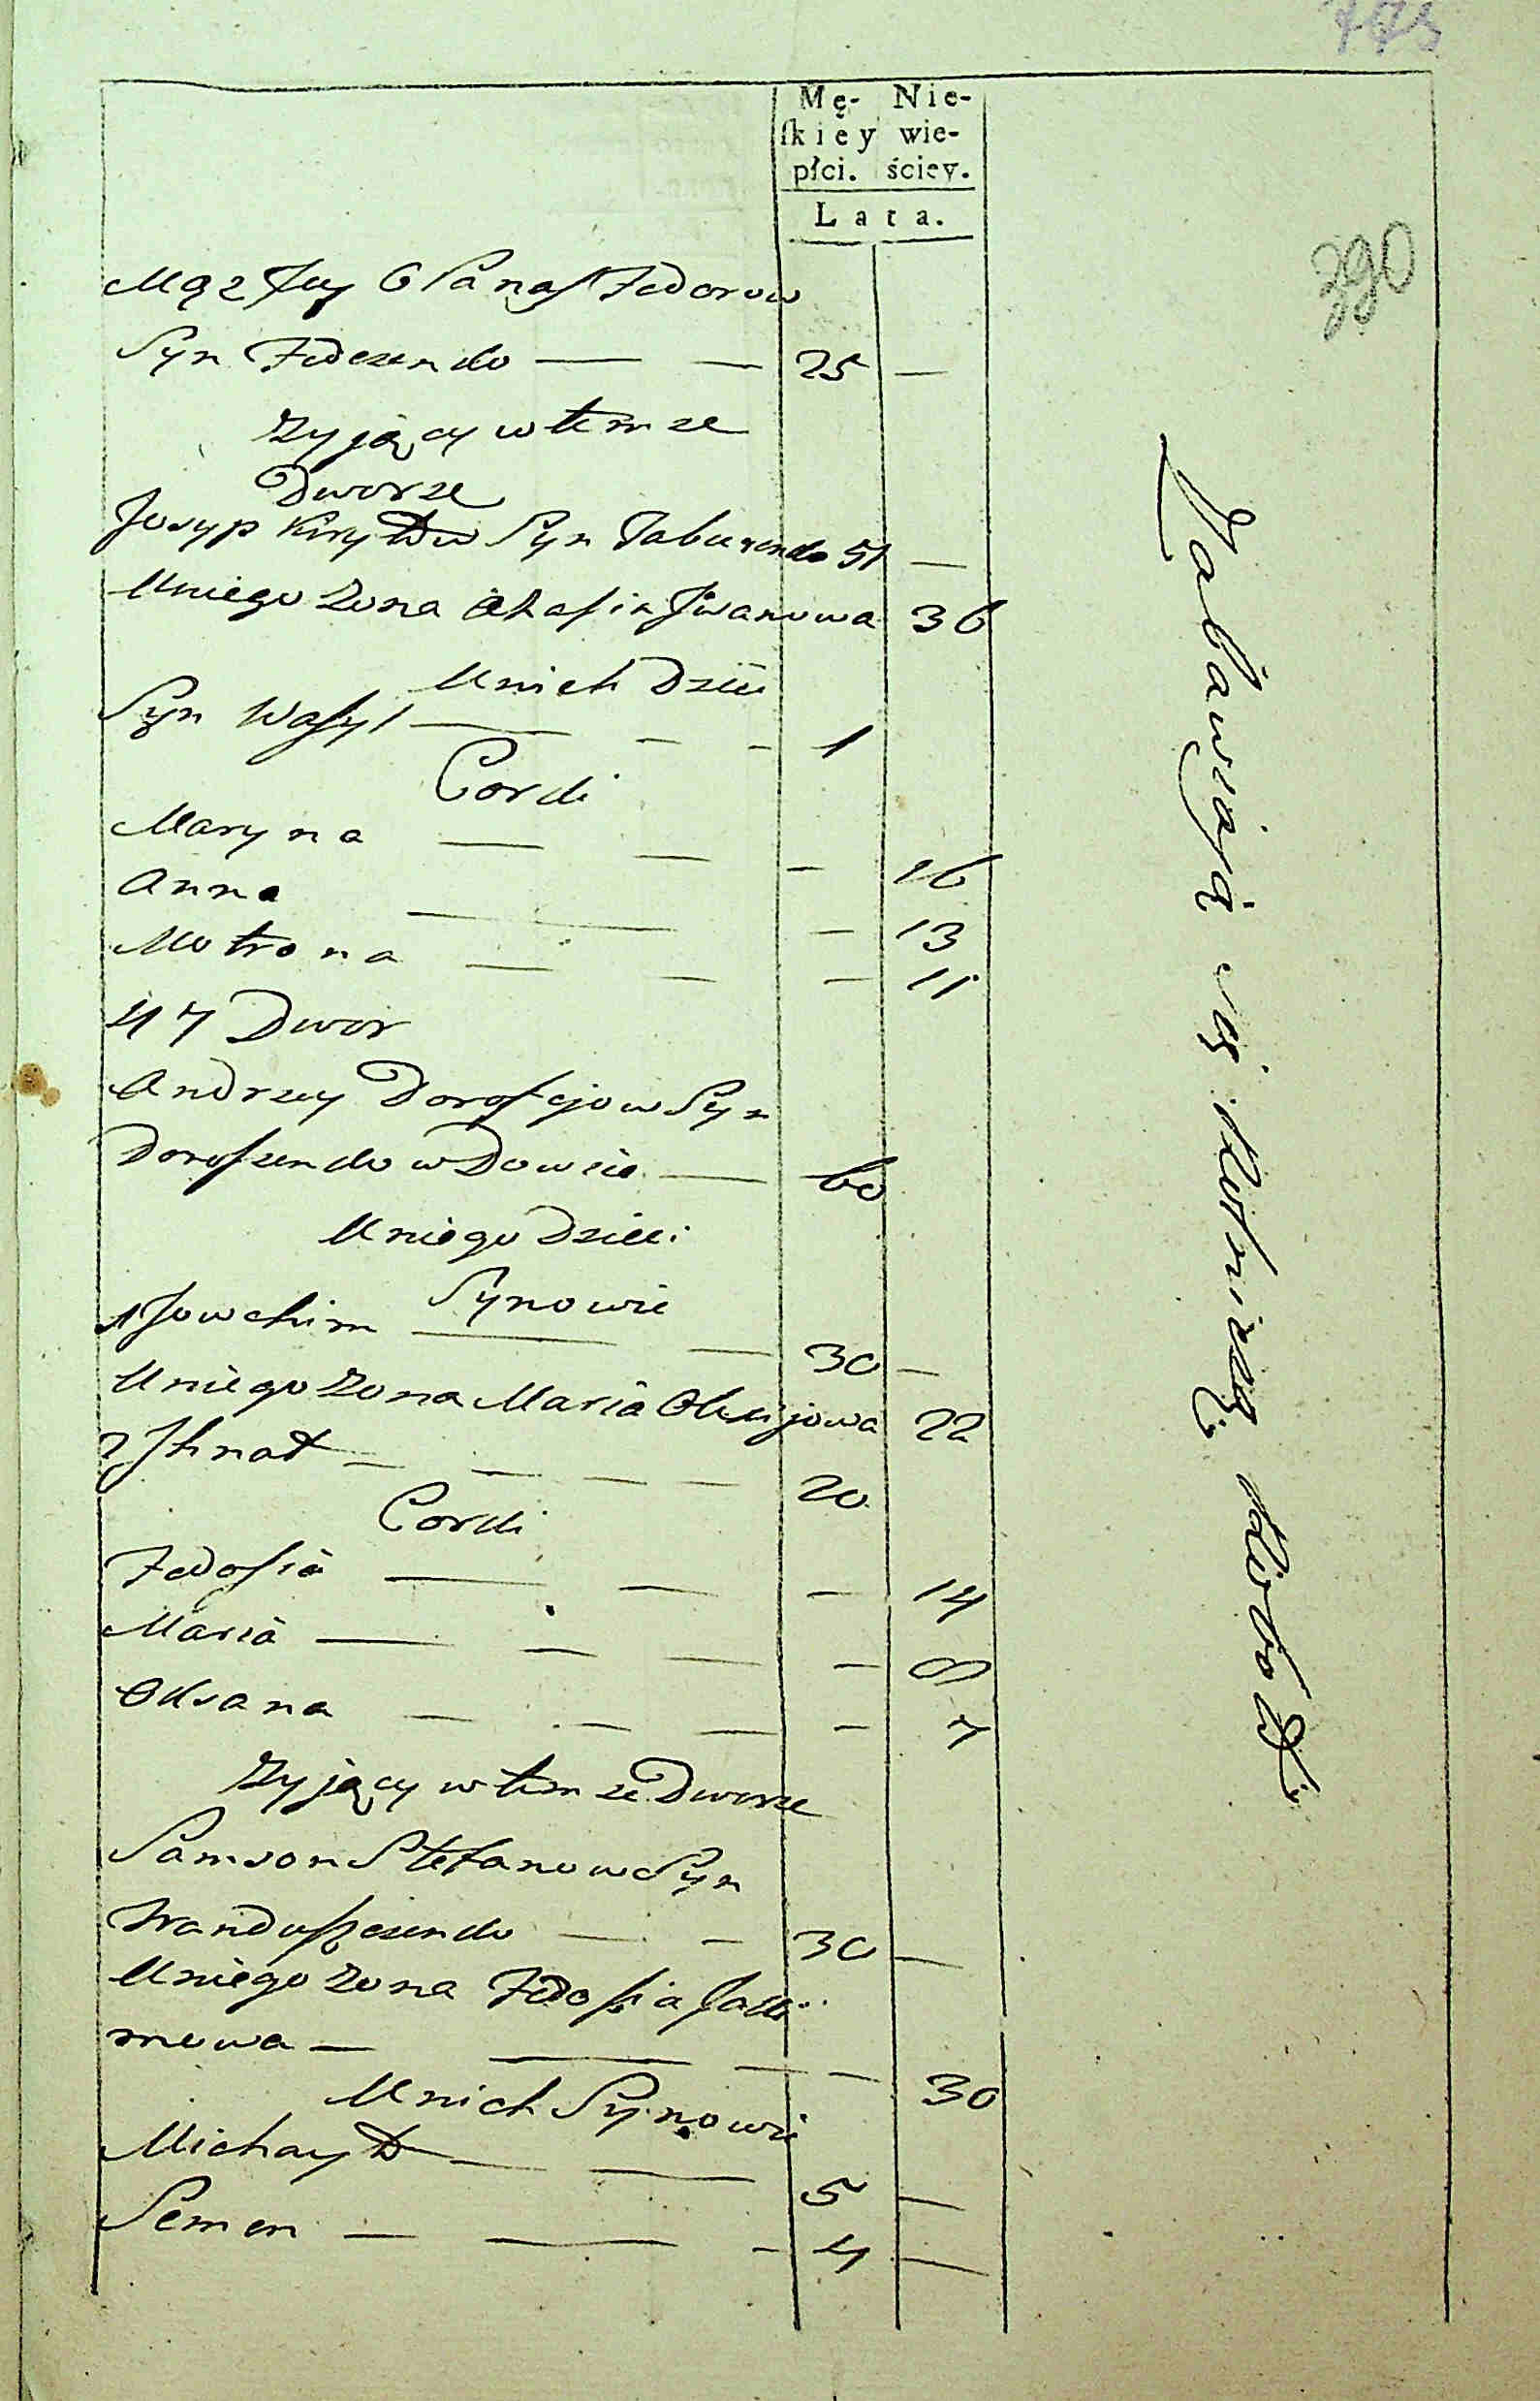 775
Mę- Nie-
ſkiey wie-
płci. ściey.
Lata.
290
Mąż Jey Opanas Fedorow
Syn Fedczenko — — 25 —
Zyjący w temze
Dworze
Josyp Kiryłow Syn Taburenko 51 —
U niego Zona Ahafia Jwanowa 36
U nich Dzieci
Syn Wasyl — — - 1
Corki
Maryna — — - 16
Anna — - 13
Motrona — — - 11
47 Dwor
Andrzey Dorofejow Syn
Doroszenko w Dowie — 60
U niego Dzieci
Synowie
1 Jowchim — — 30 —
U niego Zona Maria Olexijowa 22
2 Jhnat — — — — 20
Corki
Fedosia — — - 14
Maria — — — - 8
Oksana — — — - 7
Zyjący w temze Dworze
Samson Stefanow Syn
— - 30 —
U niego Zona Fedosia Jakii
mowa — — — - 30
U nich Synowie
Michayło — — 5 —
Semen — — - 4 —
Zabawiają się Rolniczą Robotą